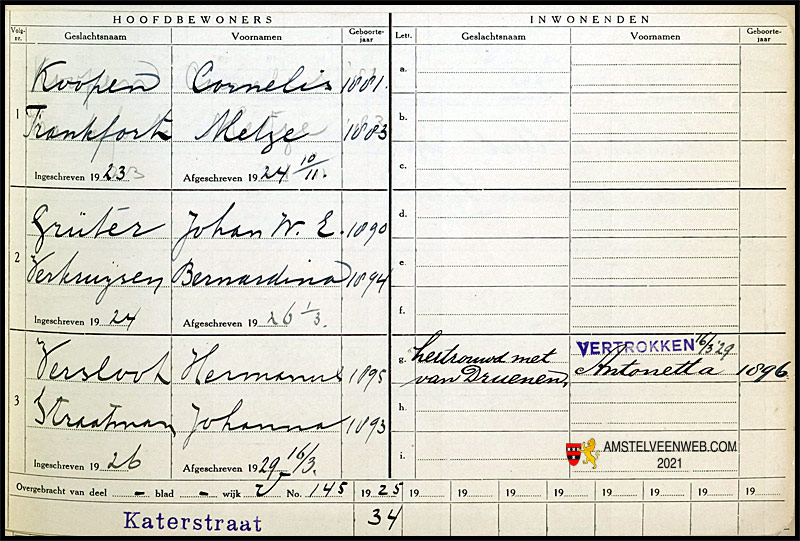 HOOFDBEWONERS
INWONENDEN
Volg-nr.
Geslachtsnaam
Voornamen
Geboorte-jaar
Lett.
Geslachtsnaam
Voornamen
Geboorte-jaar
1
Koopen Cornelis 1881.
Frankfort Metze 1883
Ingeschreven 1923
Afgeschreven 1924 10/11.
a.
b.
c.
2
Grüter Johan W. E. 1890
Verkruijsen Bernardina 1894
Ingeschreven 1924
Afgeschreven 1926 1/3.
d.
e.
f.
3
Versloot Hermanus 1895
Straatman Johanna 1893
Ingeschreven 1926
Afgeschreven 1929 16/3.
g. hertrouwd met VERTROKKEN 16/3 29
van Druenen, Antonetta 1896
h.
i.
AMSTELVEENWEB.COM
2021
Overgebracht van deel – blad – wijk No. 145 1925 19 19 19 19 19 19 19 19
Katerstraat 34